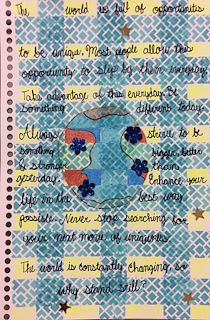 The world is full of opportunities
to be unique. Most people allow this
opportunity to slip by them everyday.
Take advantage of this everyday. Be
something different today.
Always strive to be
something bigger, better
& stronger than
yesterday. Enhance your
life in the best way
possible. Never stop searching for
your next move of uniqueness.
The world is constantly changing, so
why stand still?